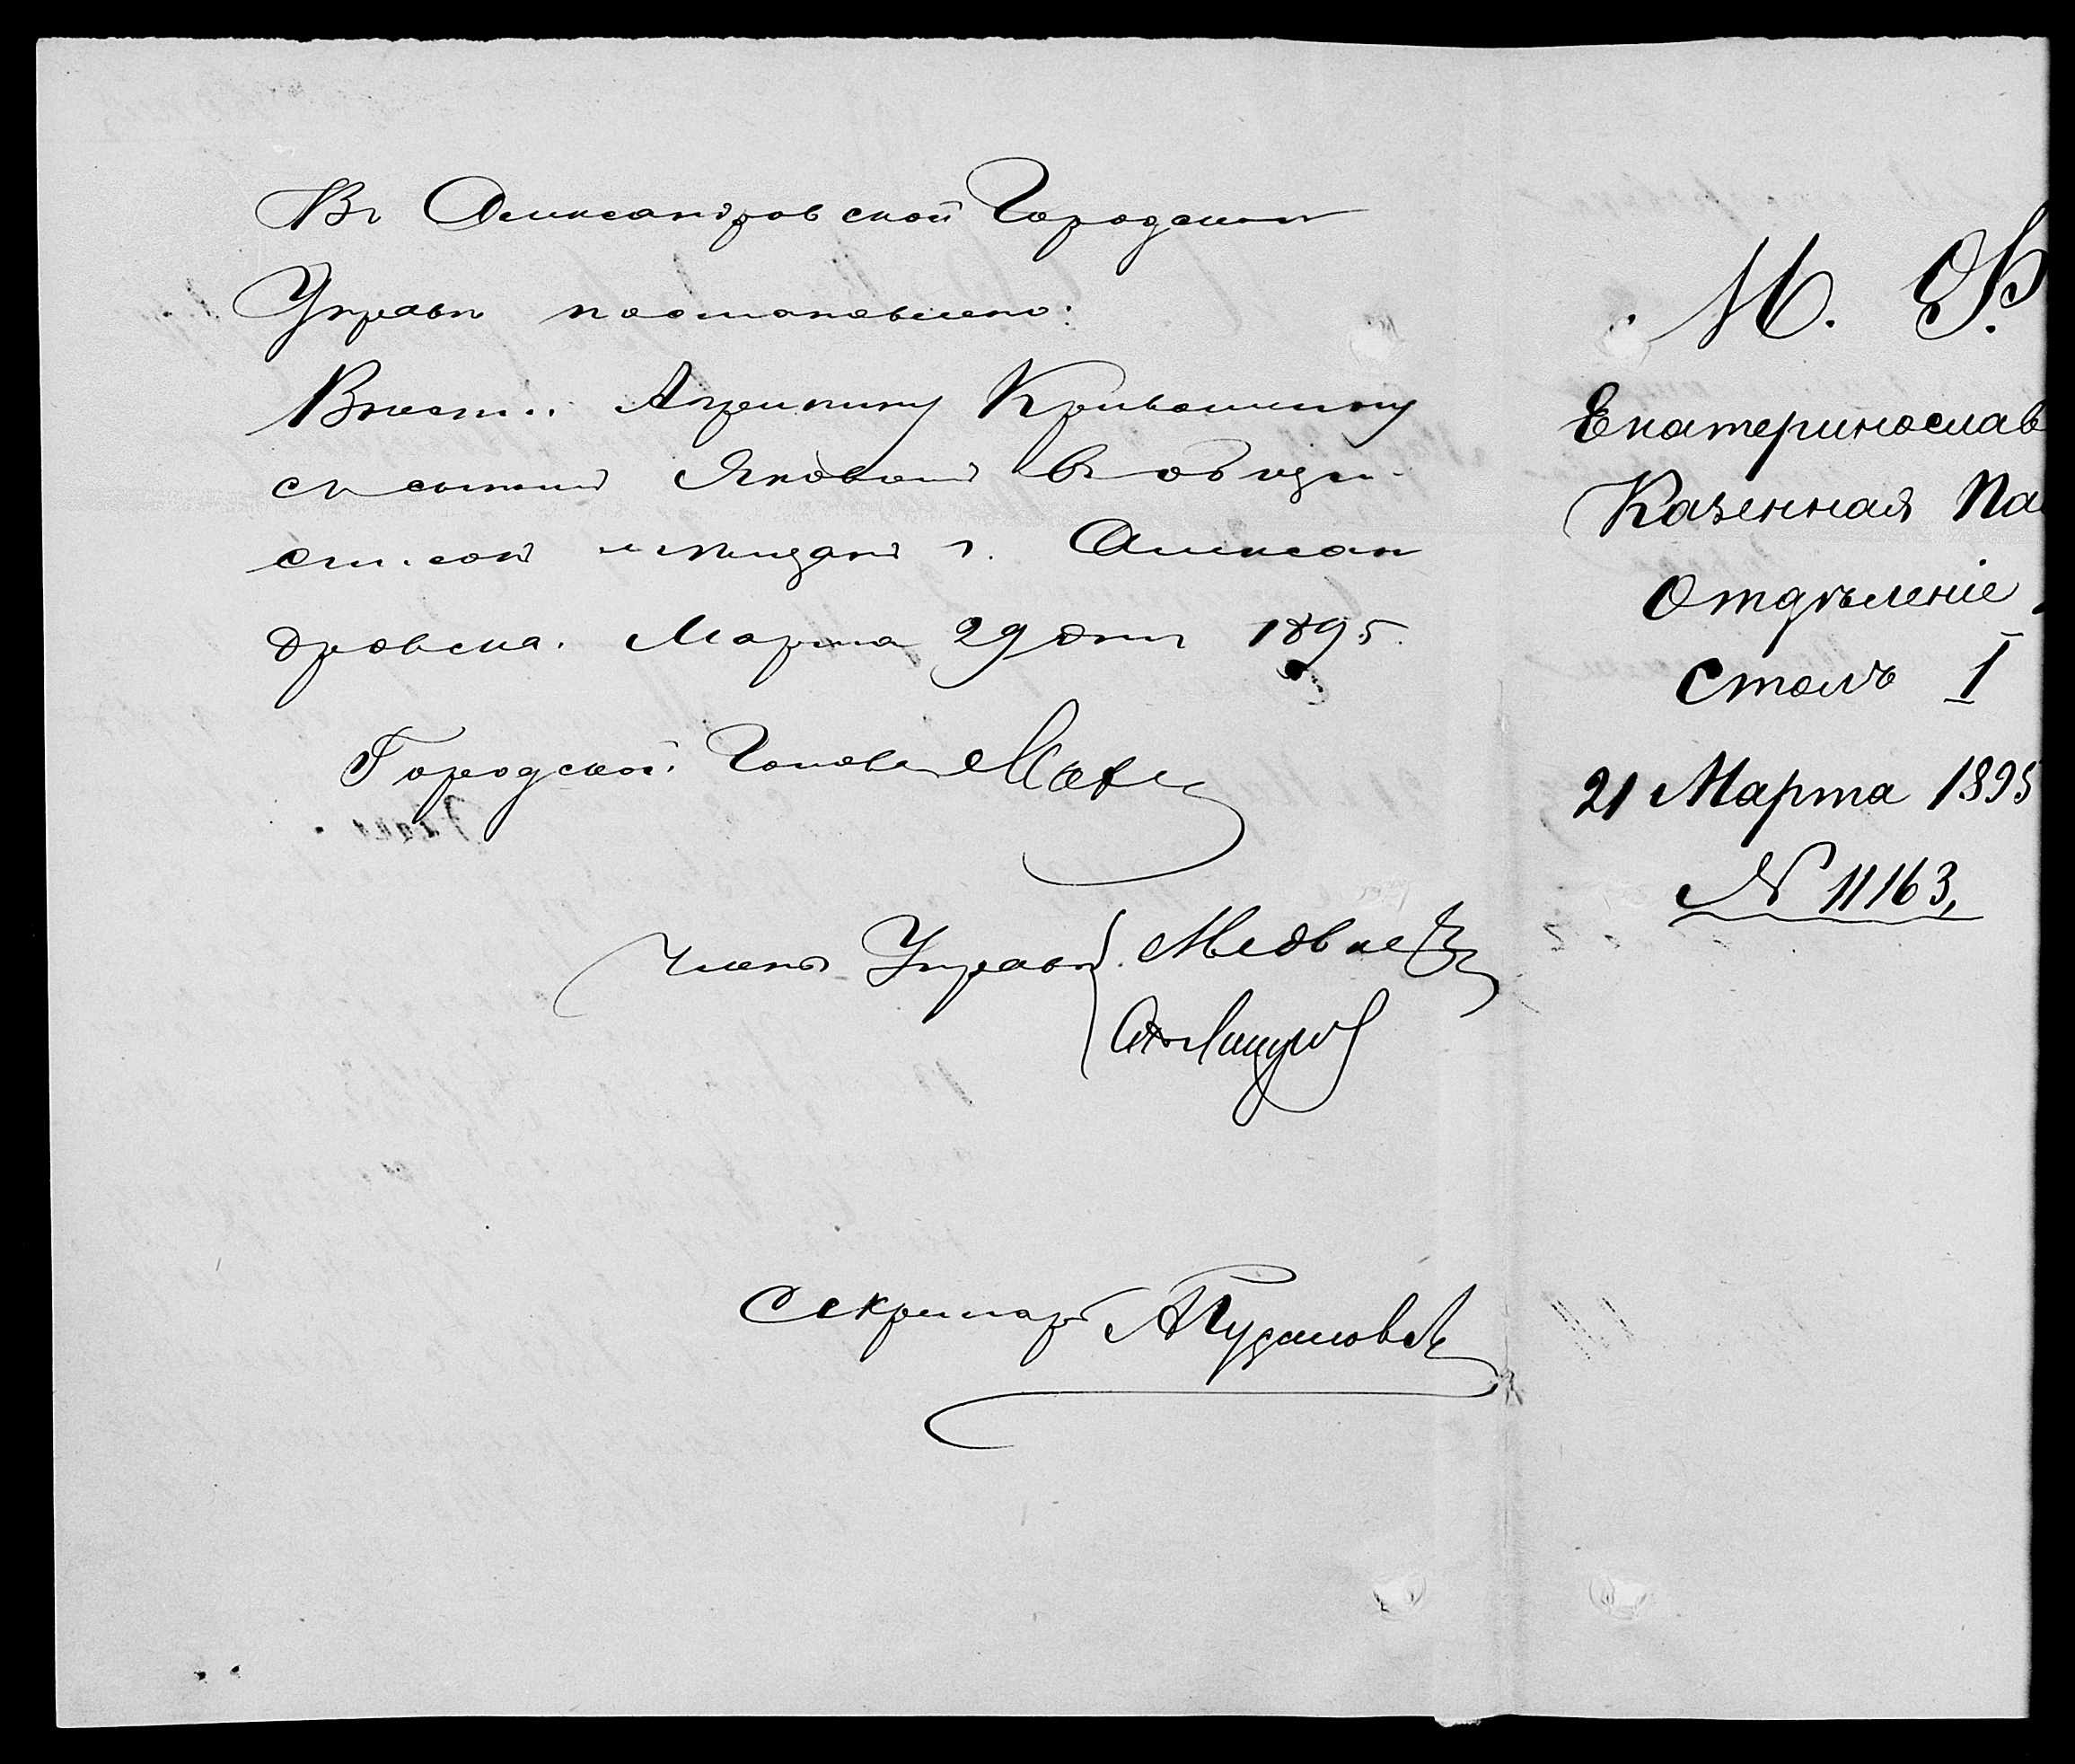 Въ Александровской Городской
Управѣ постановлено:
Внести Агрипину Кривошеину
съ сыномъ Яковомъ въ общій
списокъ мѣщанъ г. Алексан
дровска. Марта 29 дня 1895.
Городской Голова
Члены Управы
Секретарь
М. Ф.
Екатеринослав
Казенная Па
Отдѣленіе
Столъ I
21 Марта 1895
№ 11163,